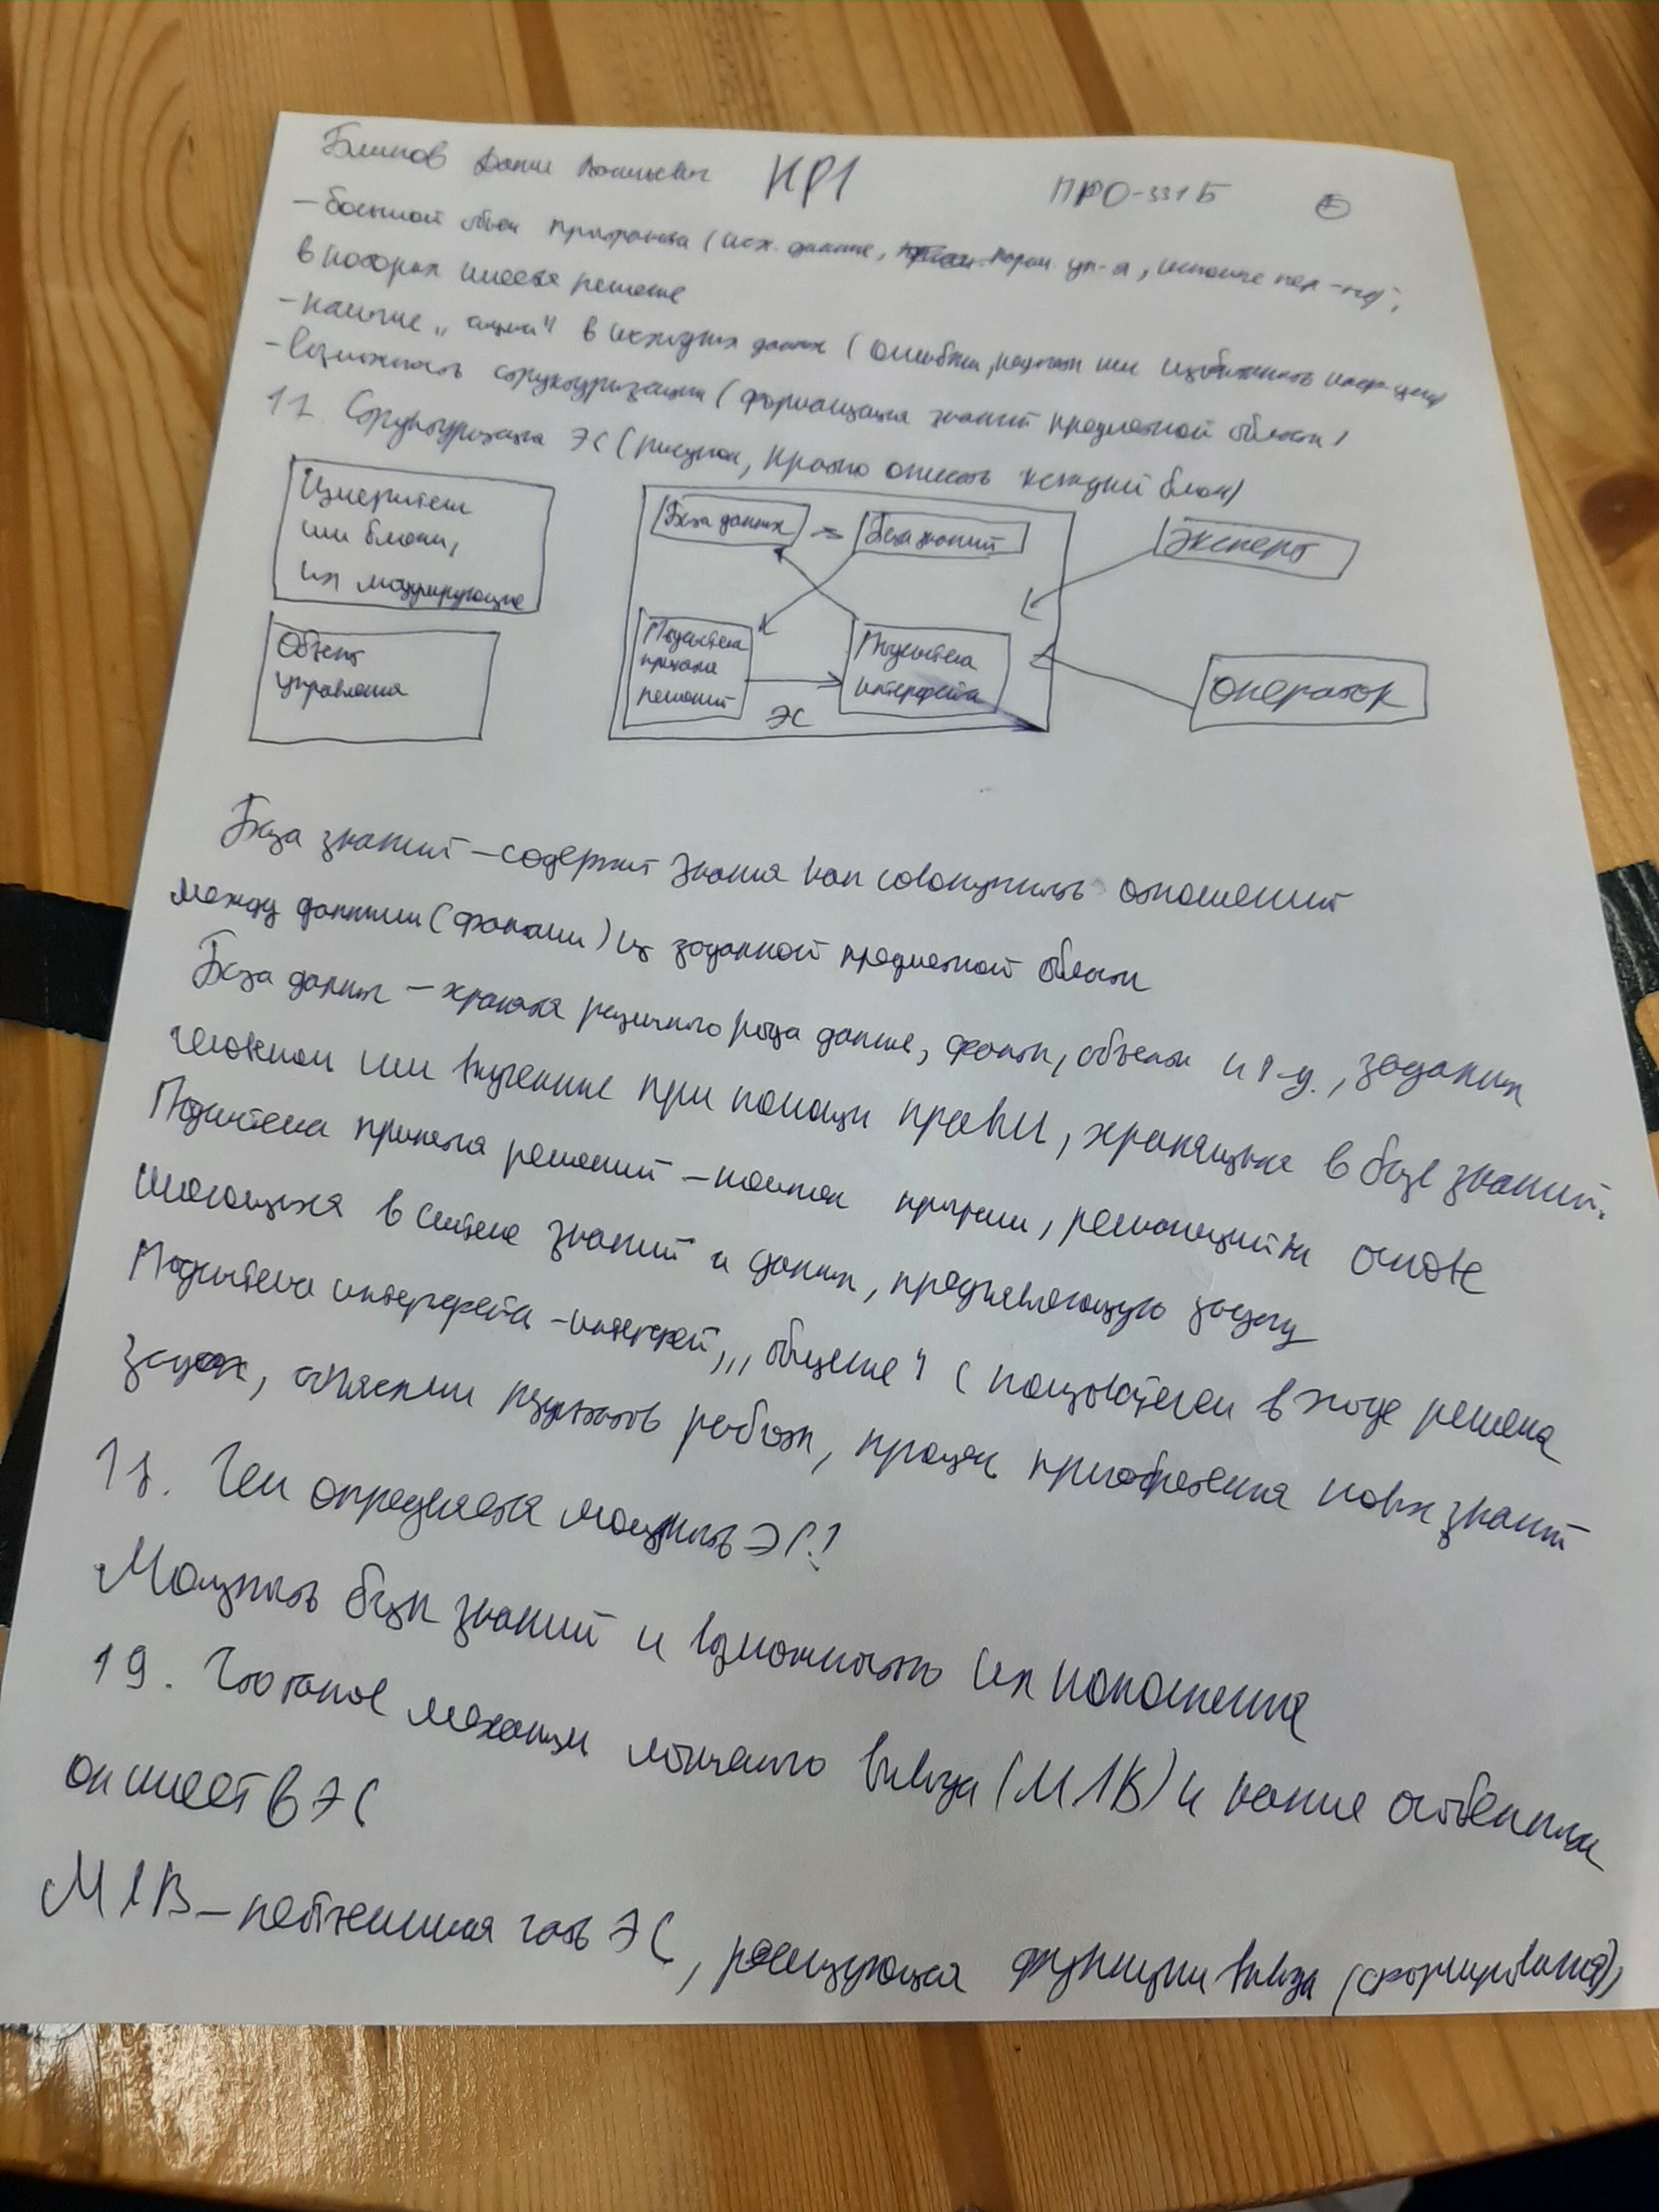 Блинов Данил КР1 ПРО-331Б
- большой объем пространства (исх. данные, парам. уп-я,
в котором имеется решение
- наличие "шума" в исходных данных (ошибки, или избыточность
- возможность структуризации (формализация знаний предметной области)
17. Структуризация ЭС (рисунок, кратко описать каждый блок)
Измерители
или блоки,
их моделирующие
Объект
управления
База данных
База знаний
Подсистема
принятия
решений
Подсистема
интерфейса
ЭС
Эксперт
Оператор
База знаний - содержит знания как совокупность отношений
между данными (фактами) из заданной предметной области
База данных - хранятся различного рода данные, факты, объекты и т.д., заданных
человеком или выученные при помощи правил, хранящихся в базе знаний.
Подсистема принятия решений - комплекс программ, решающий на основе
имеющихся в системе знаний и данных, предъявляющую задачу
Подсистема интерфейса - интерфейс, "общение" с пользователем в ходе решения
задач, объяснении результатов работы, процесс приобретения новых знаний
18. Чем определяется мощность ЭС?
Мощность базы знаний и возможность их пополнения
19. Что такое механизм логического вывода (МЛВ) и какие особенности
он имеет в ЭС
МЛВ - неотъемлемая часть ЭС, реализующая функции вывода (формирования),